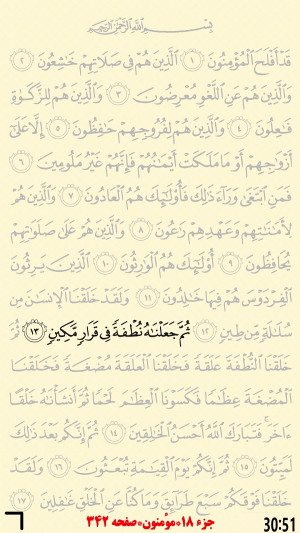 بِسْمِ اللَّهِ الرَّحْمَٰنِ الرَّحِيمِ
قَدْ أَفْلَحَ الْمُؤْمِنُونَ ۝١ الَّذِينَ هُمْ فِي صَلَاتِهِمْ خَاشِعُونَ ۝٢
وَالَّذِينَ هُمْ عَنِ اللَّغْوِ مُعْرِضُونَ ۝٣ وَالَّذِينَ هُمْ لِلزَّكَوٰةِ
فَاعِلُونَ ۝٤ وَالَّذِينَ هُمْ لِفُرُوجِهِمْ حَافِظُونَ ۝٥ إِلَّا عَلَىٰ
أَزْوَاجِهِمْ أَوْ مَا مَلَكَتْ أَيْمَانُهُمْ فَإِنَّهُمْ غَيْرُ مَلُومِينَ ۝٦
فَمَنِ ابْتَغَىٰ وَرَاءَ ذَٰلِكَ فَأُولَٰئِكَ هُمُ الْعَادُونَ ۝٧ وَالَّذِينَ هُمْ
لِأَمَانَاتِهِمْ وَعَهْدِهِمْ رَاعُونَ ۝٨ وَالَّذِينَ هُمْ عَلَىٰ صَلَوَاتِهِمْ
يُحَافِظُونَ ۝٩ أُولَٰئِكَ هُمُ الْوَارِثُونَ ۝١٠ الَّذِينَ يَرِثُونَ
الْفِرْدَوْسَ هُمْ فِيهَا خَالِدُونَ ۝١١ وَلَقَدْ خَلَقْنَا الْإِنْسَانَ مِنْ
سُلَالَةٍ مِنْ طِينٍ ۝١٢ ثُمَّ جَعَلْنَاهُ نُطْفَةً فِي قَرَارٍ مَكِينٍ ۝١٣ ثُمَّ
خَلَقْنَا النُّطْفَةَ عَلَقَةً فَخَلَقْنَا الْعَلَقَةَ مُضْغَةً فَخَلَقْنَا
الْمُضْغَةَ عِظَامًا فَكَسَوْنَا الْعِظَامَ لَحْمًا ثُمَّ أَنْشَأْنَاهُ خَلْقًا
آخَرَ فَتَبَارَكَ اللَّهُ أَحْسَنُ الْخَالِقِينَ ۝١٤ ثُمَّ إِنَّكُمْ بَعْدَ ذَٰلِكَ
لَمَيِّتُونَ ۝١٥ ثُمَّ إِنَّكُمْ يَوْمَ الْقِيَامَةِ تُبْعَثُونَ ۝١٦ وَلَقَدْ
خَلَقْنَا فَوْقَكُمْ سَبْعَ طَرَائِقَ وَمَا كُنَّا عَنِ الْخَلْقِ غَافِلِينَ ۝١٧
جزء ۱۸•مومنون•صفحه ۳۴۲
30:51